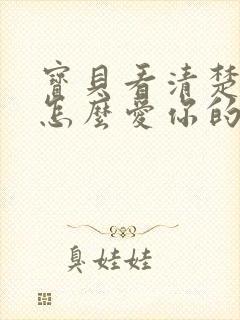 寶貝看清楚
怎麼愛你的
臭娃娃